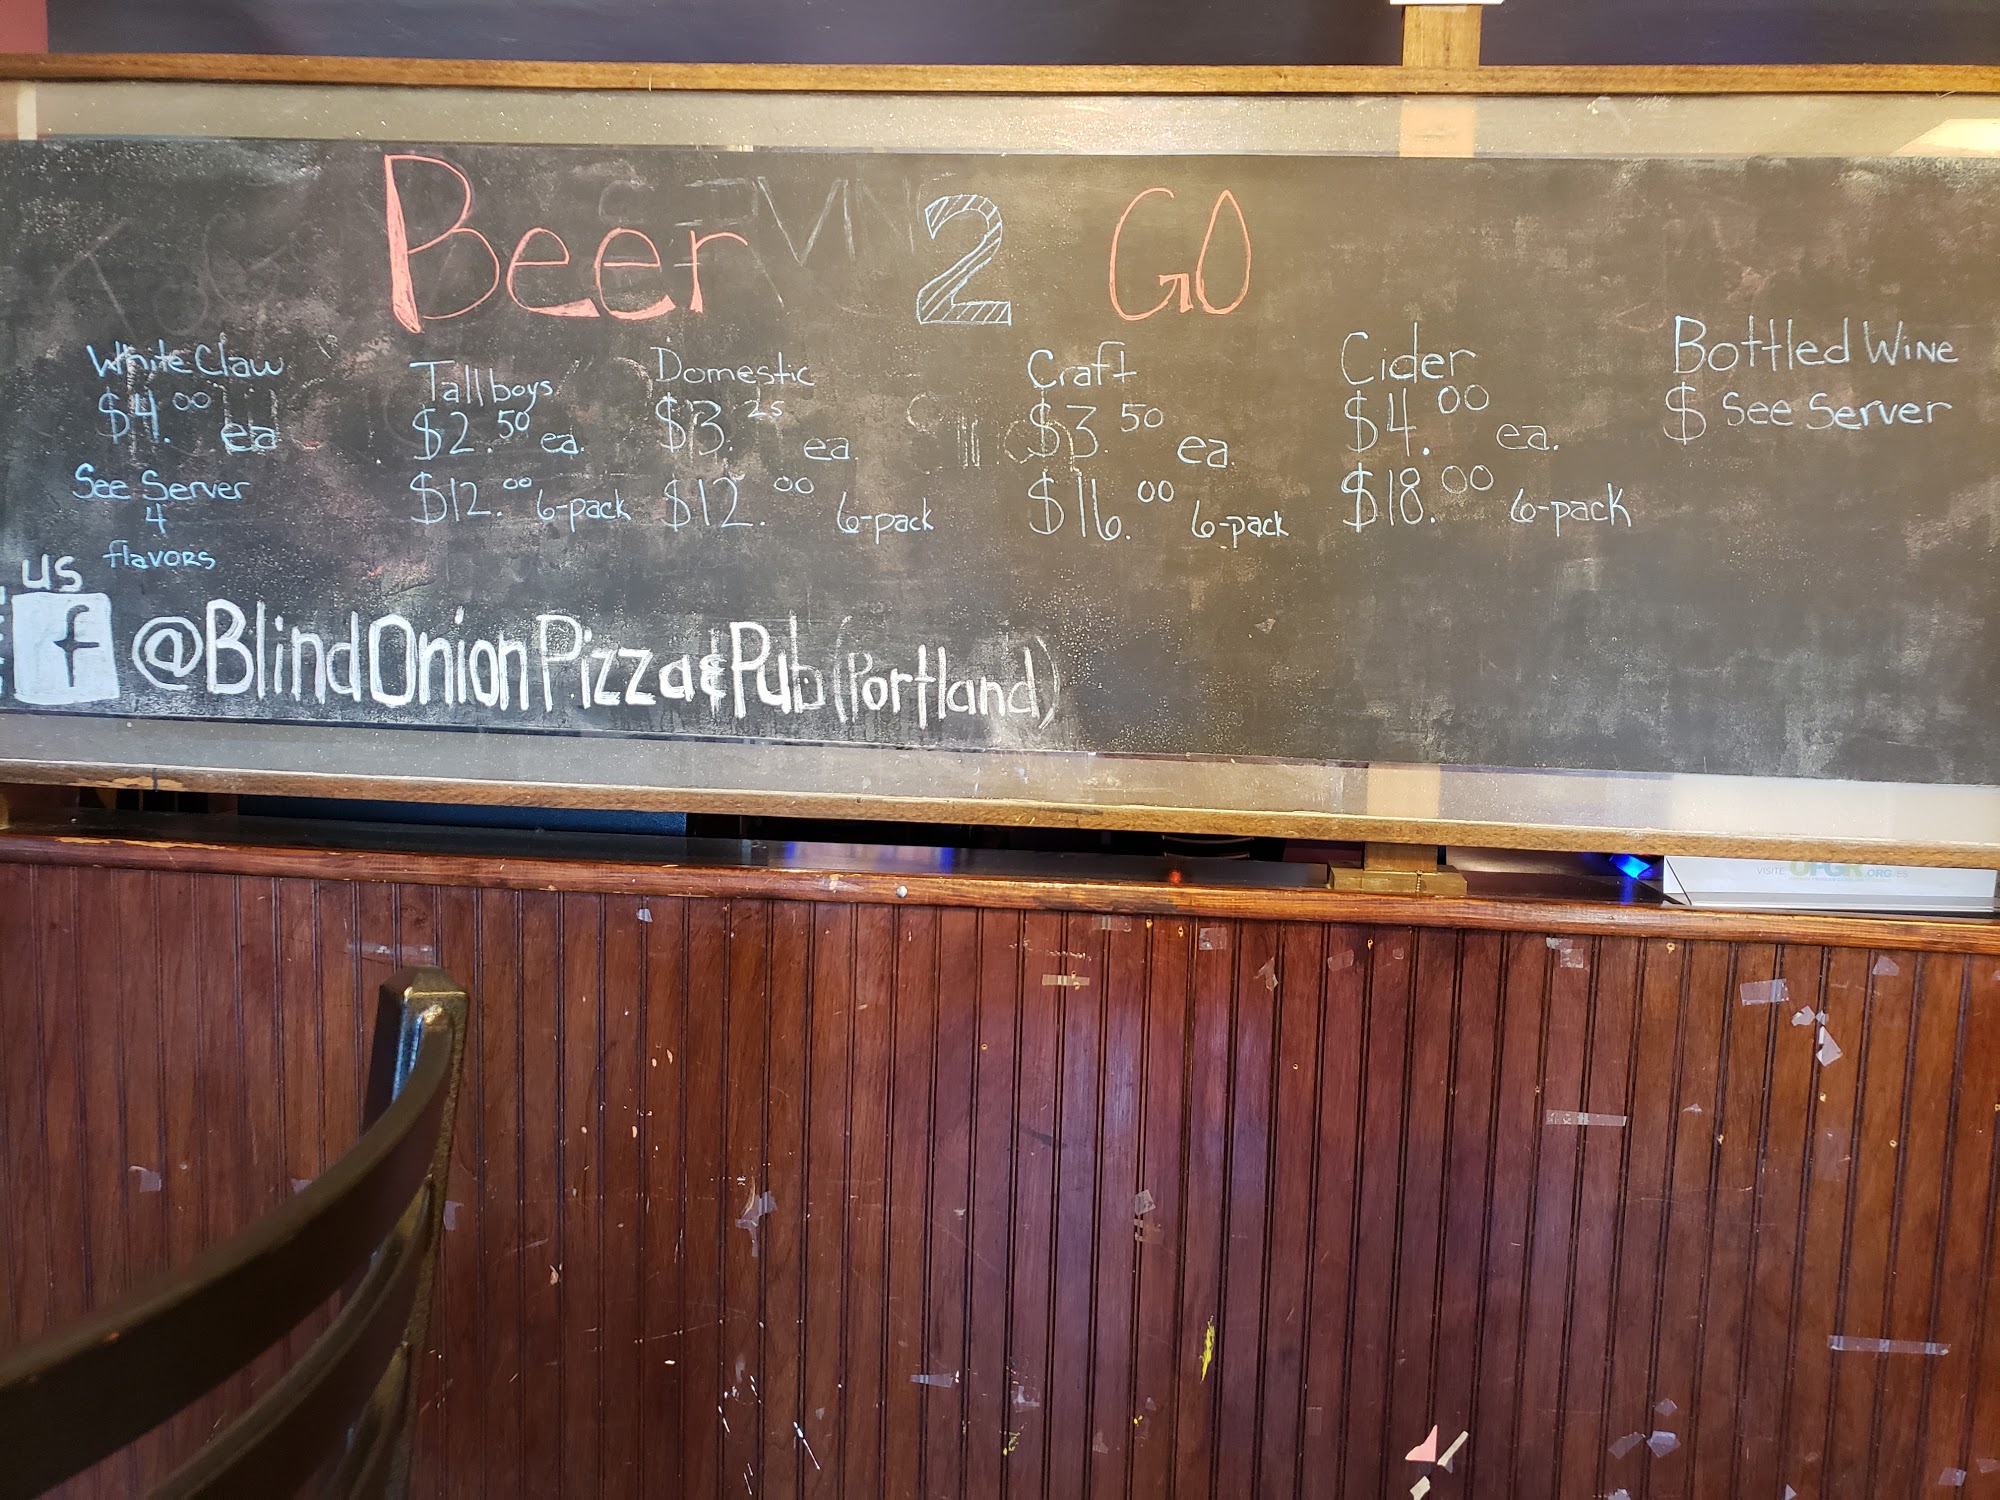 Beer 2 GO
White Claw
$4.00 ea
See Server
4
flavors
Tall boys
$2.50 ea.
$12.00 6-pack
Domestic
$3.25 ea.
$12.00 6-pack
Craft
$3.50 ea.
$16.00 6-pack
Cider
$4.00 ea.
$18.00 6-pack
Bottled Wine
$ See Server
us
f @BlindOnionPizza&Pub(Portland)
VISITE UFGK.ORG/ES